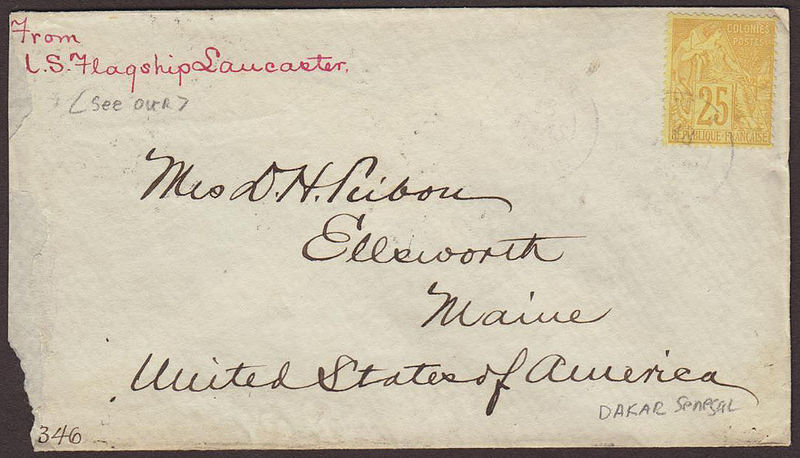 From
U.S. Flagship Lancaster.
(See OVER)
COLONIES
POSTES
25
RÉPUBLIQUE FRANÇAISE
Mrs D. H.
Ellsworth
Maine
United States of America
DAKAR Senegal
346